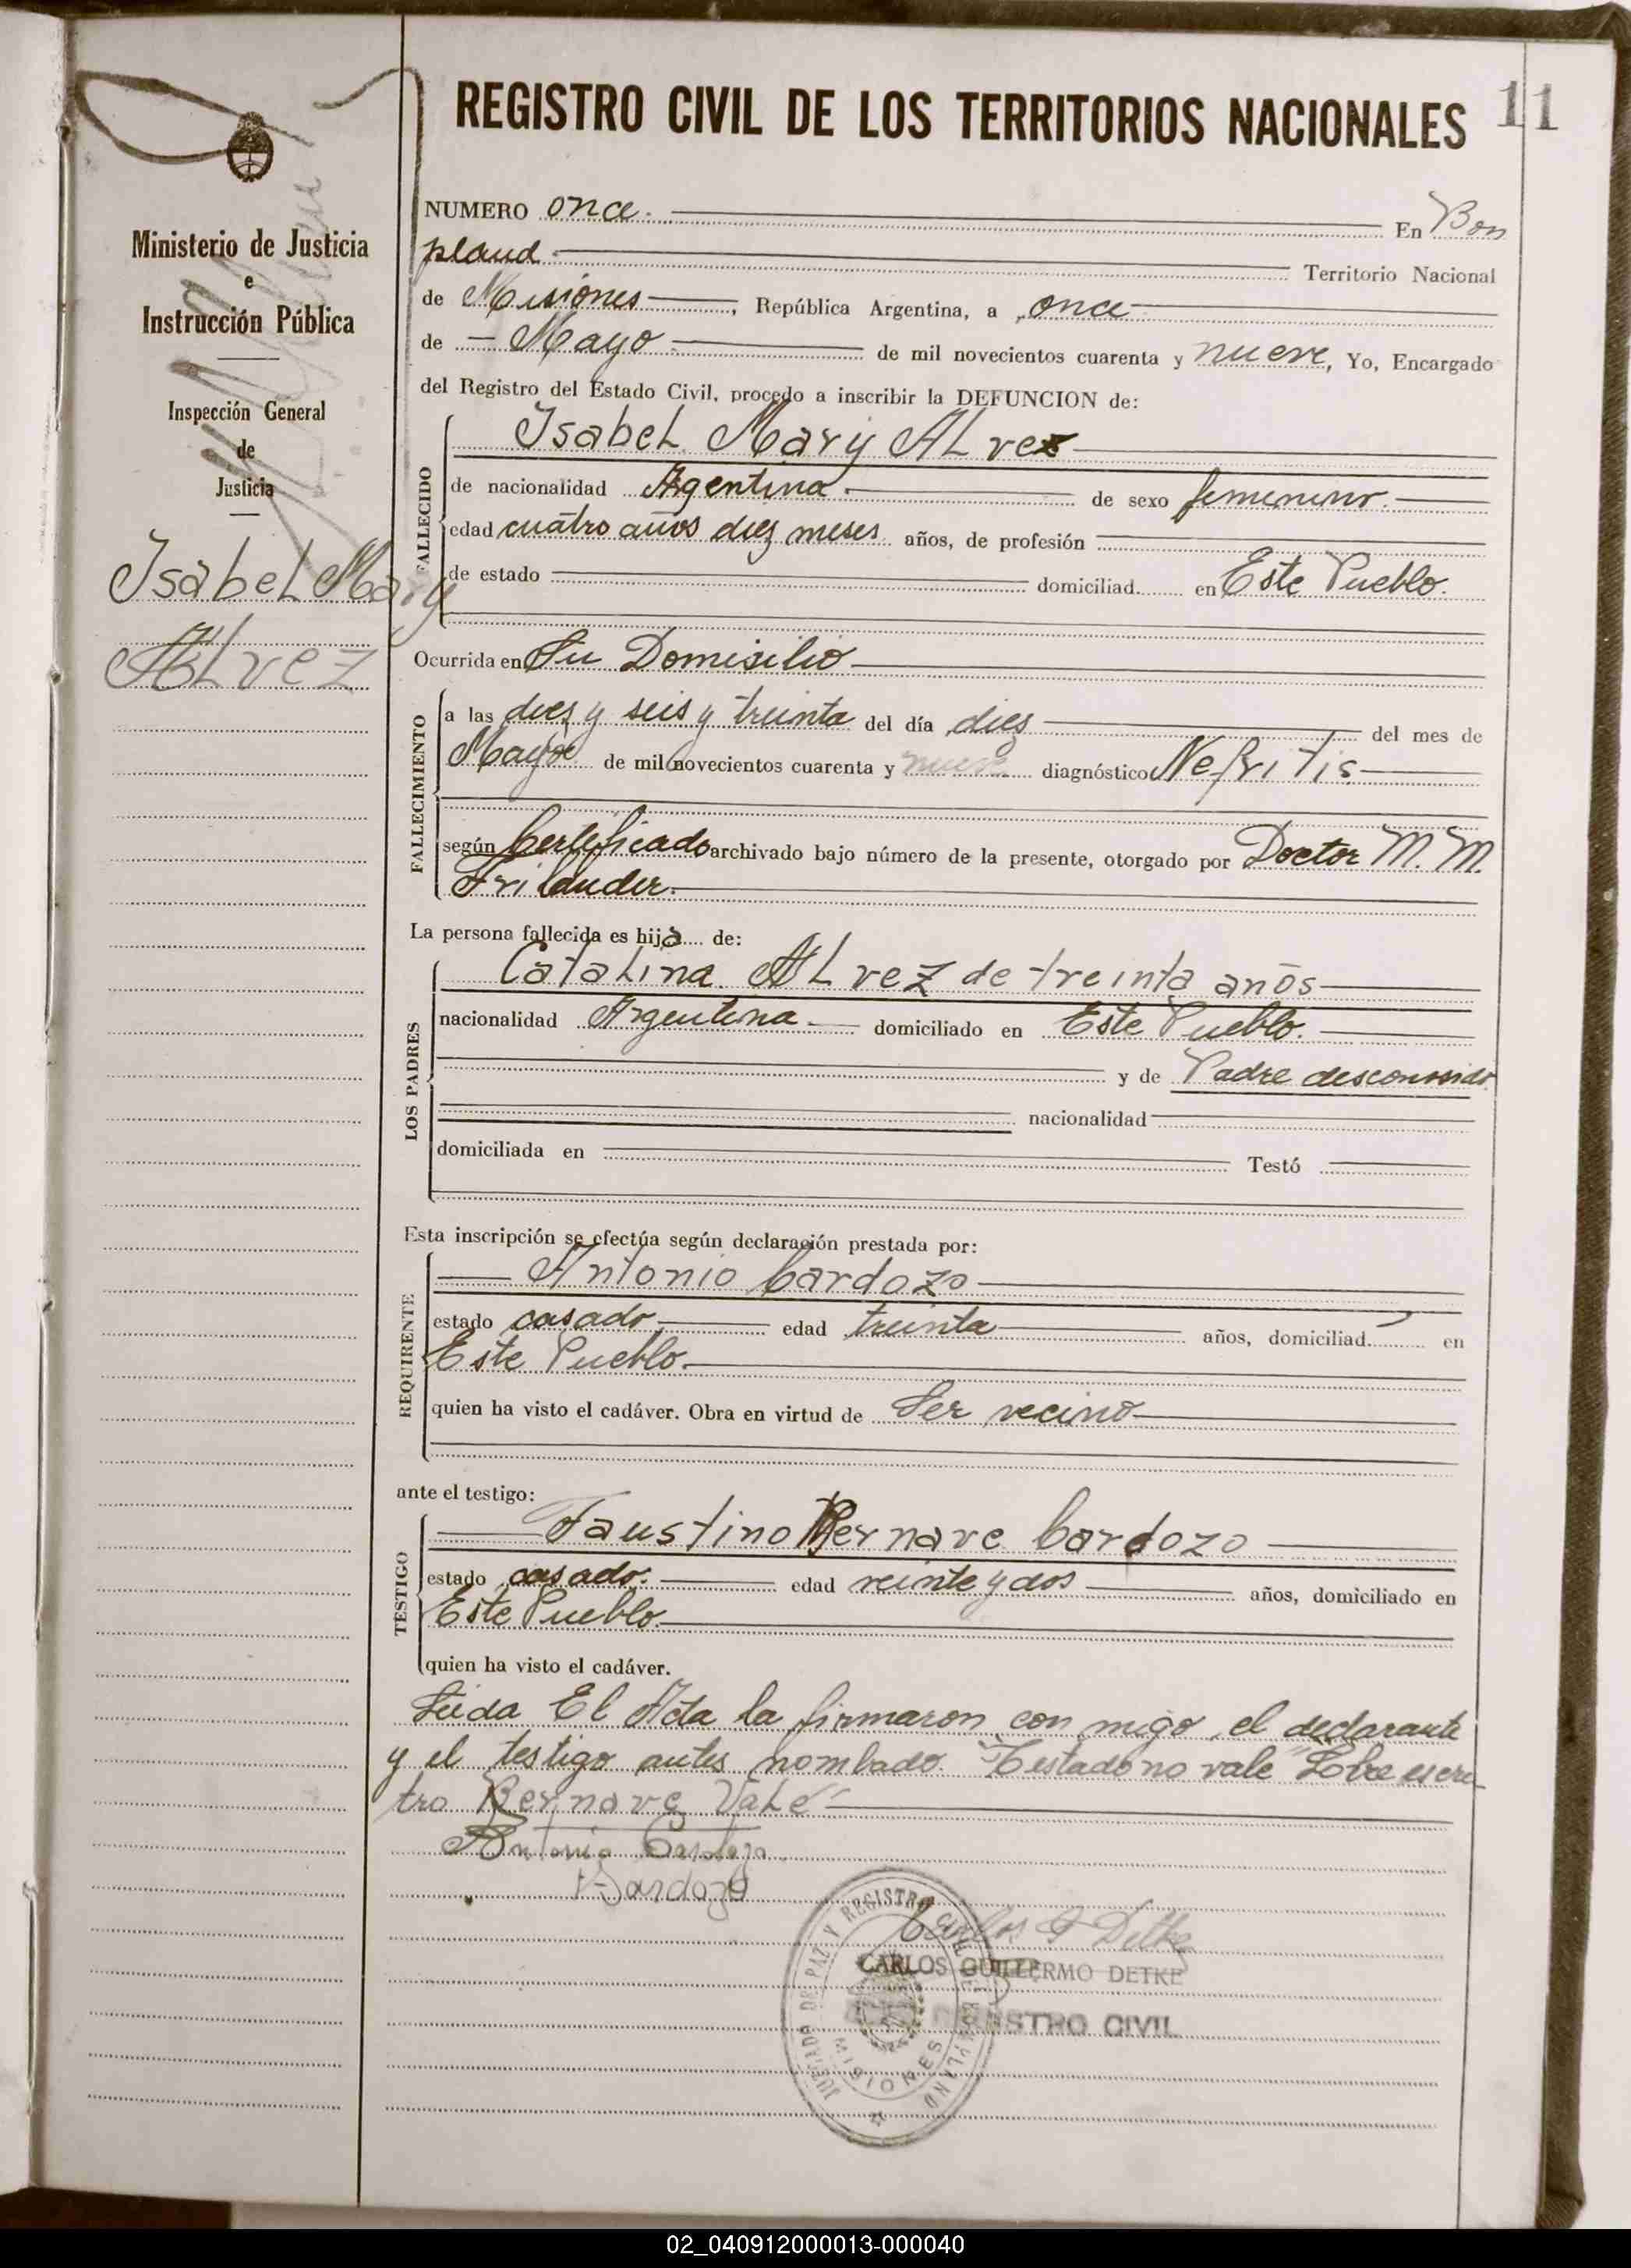 REGISTRO CIVIL DE LOS TERRITORIOS NACIONALES
11
Ministerio de Justicia
e
Instrucción Pública
Inspección General
de
Justicia
Isabel Mary
Alvez
NUMERO once. En Bon
pland Territorio Nacional
de Misiones, República Argentina, a once
de Mayo de mil novecientos cuarenta y nueve, Yo, Encargado
del Registro del Estado Civil, procedo a inscribir la DEFUNCION de:
FALLECIDO
Isabel Mary Alvez
de nacionalidad Argentina. de sexo femenino.
edad cuatro años diez meses años, de profesión
de estado domiciliad en Este Pueblo.
Ocurrida en Su Domisilio
FALLECIMIENTO
a las diez y seis y treinta del día dies del mes de
Mayo de mil novecientos cuarenta y nueve diagnóstico Nefritis
según Certificado archivado bajo número de la presente, otorgado por Doctor M. M.
Frilander.
La persona fallecida es hija de:
LOS PADRES
Catalina Alvez de treinta años
nacionalidad Argentina. domiciliado en Este Pueblo.
y de Padre desconosido
nacionalidad
domiciliada en Testó
Esta inscripción se efectúa según declaración prestada por:
REQUIRENTE
Antonio Cardozo
estado casado edad treinta años, domiciliad en
Este Pueblo.
quien ha visto el cadáver. Obra en virtud de Ser vecino
ante el testigo:
TESTIGO
Faustino Bernave Cardozo
estado casado. edad veinte y dos años, domiciliado en
Este Pueblo.
quien ha visto el cadáver.
Leida El Acta la firmaron con migo, el declarante
y el testigo antes nombado. "Testado no vale" Sobre escri
tro Bernave Vale
Antonio Cardozo
Cardozo
Carlos G Detke
CARLOS GUILLERMO DETKE
REGISTRO CIVIL
JUZGADO DE PAZ Y REGISTRO CIVIL BONPLAND
MISIONES
02_040912000013-000040